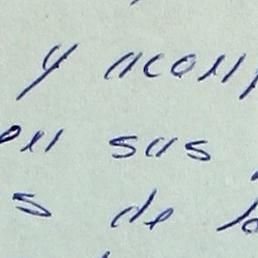 y acom
on sus
s de la